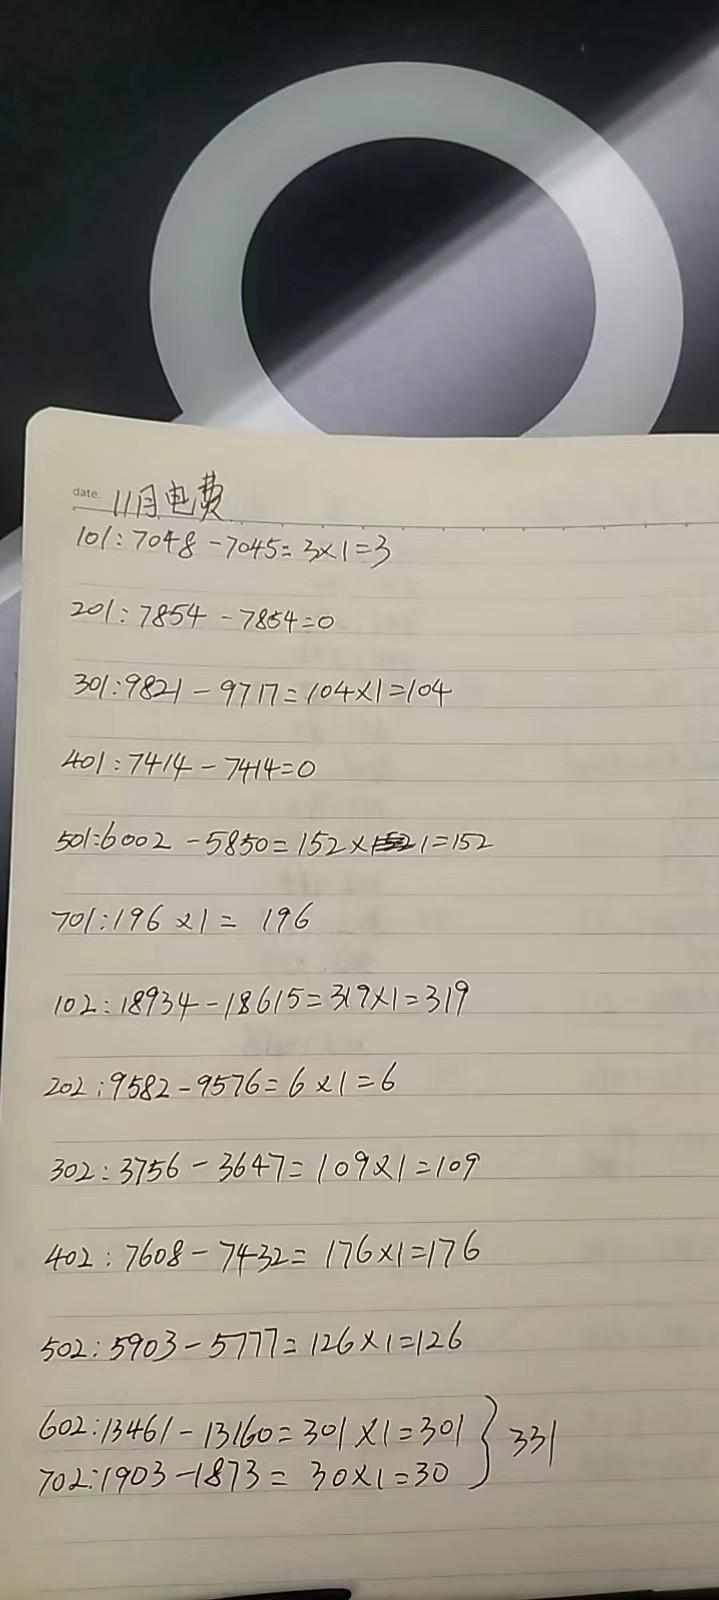 date. 11月电费
101:7048-7045=3×1=3
201:7854-7854=0
301:9821-9717=104×1=104
401:7414-7414=0
501:6002-5850=152×1=152
701:196×1= 196
102:18934-18615=319×1=319
202:9582-9576=6×1=6
302:3756-3647=109×1=109
402:7608-7432=176×1=176
502:5903-5777=126×1=126
602:13461-13160=301×1=301 } 331
702:1903-1873= 30×1=30